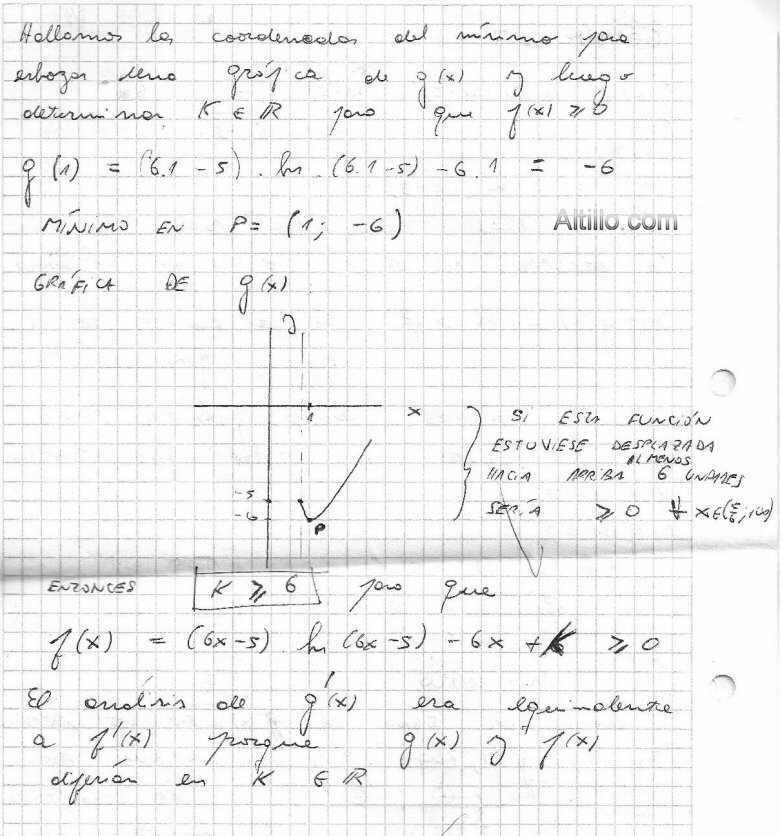 Hallamos las coordenadas del mínimo para
esbozar una gráfica de g(x) y luego
determinar K ∈ ℝ para que f(x) ≥ 0
g(1) = (6.1 - 5) . ln (6.1-5) - 6.1 = -6
MÍNIMO EN P = (1; -6)
Altillo.com
GRÁFICA DE g(x)
y
1 x
-5
-6
P
SI ESTA FUNCIÓN
ESTUVIESE DESPLAZADA
AL MENOS
HACIA ARRIBA 6 UNIDADES
SERÍA ≥ 0 ∀ x∈(5/6; +∞)
ENTONCES K ≥ 6 para que
f(x) = (6x-5) ln (6x-5) - 6x + K ≥ 0
El análisis de g'(x) era equivalente
a f'(x) porque g(x) y f(x)
diferían en K ∈ ℝ